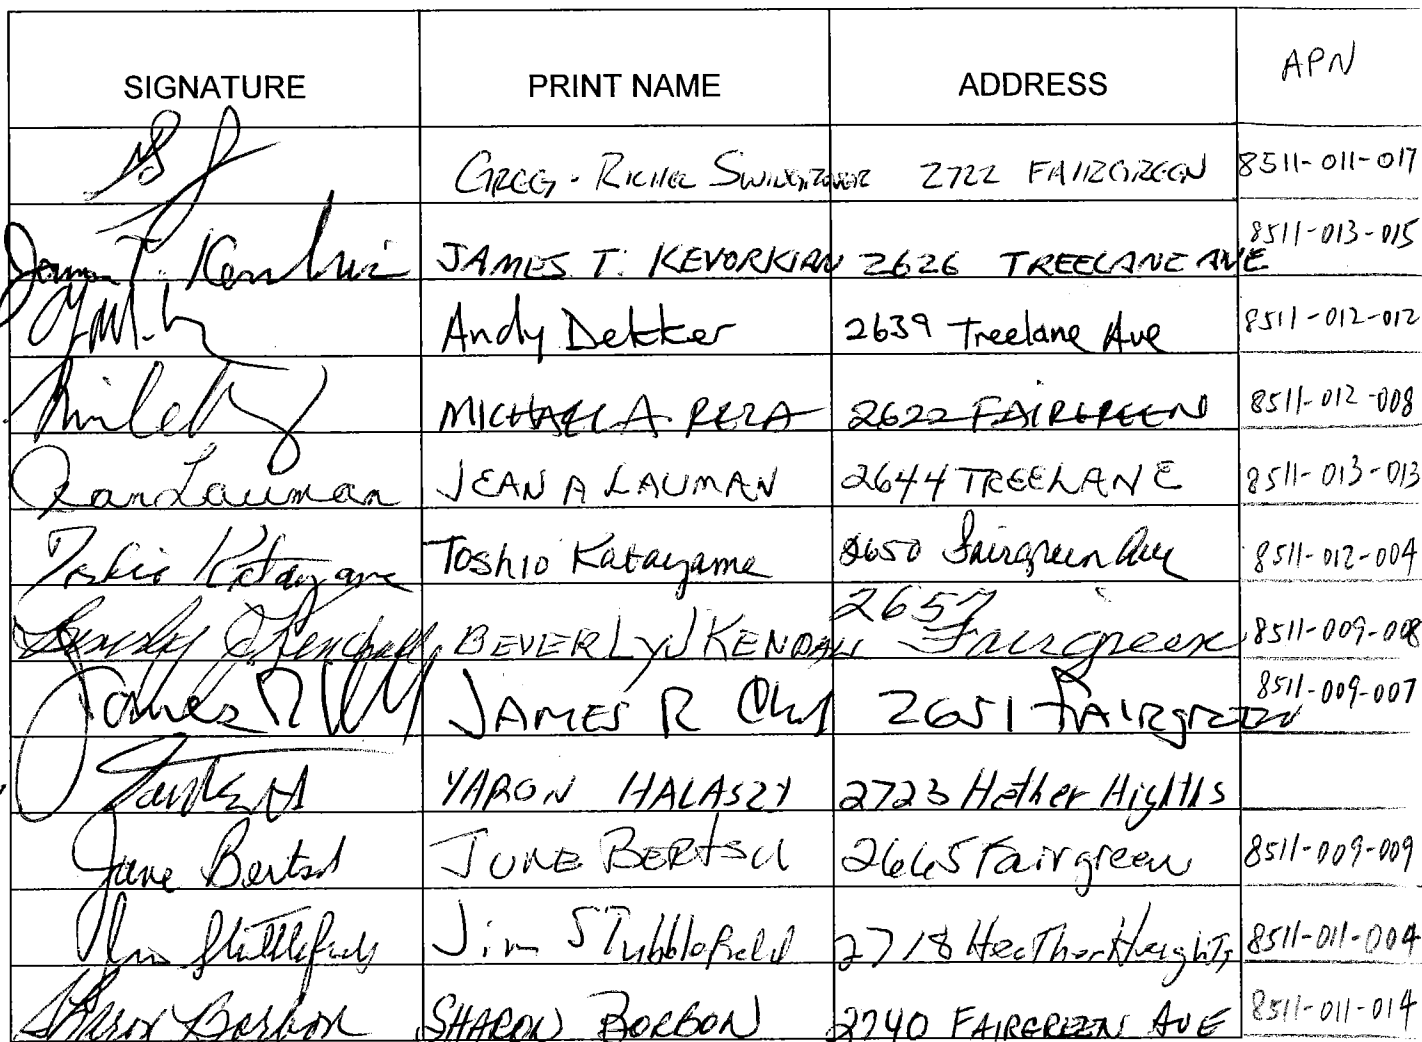 SIGNATURE PRINT NAME ADDRESS APN
GREG - 2722 FAIRGREEN 8511-011-017
James T. JAMES T. KEVORKIAN 2626 TREELANE AVE 8511-013-015
Andy Dekker 2639 Treelane Ave 8511-012-012
MICHAEL A. REZA 2622 FAIRGREEN 8511-012-008
Jean Lauman JEAN A LAUMAN 2644 TREELANE 8511-013-013
Toshio Katayama Toshio Katayama 2650 Fairgreen Ave 8511-012-004
Beverly J Kendall BEVERLY J KENDALL 2657 Fairgreen 8511-009-008
James R JAMES R 2651 FAIRgreen 8511-009-007
YARON HALASZY 2723 Hether Highths
June Bertsch JUNE BERTSCH 2665 Fairgreen 8511-009-009
Jim Stubblefield Jim STubblefield 2718 HeaTherHeighTs 8511-011-004
Sharon Borbon SHARON BORBON 2740 FAIRGREEN AVE 8511-011-014